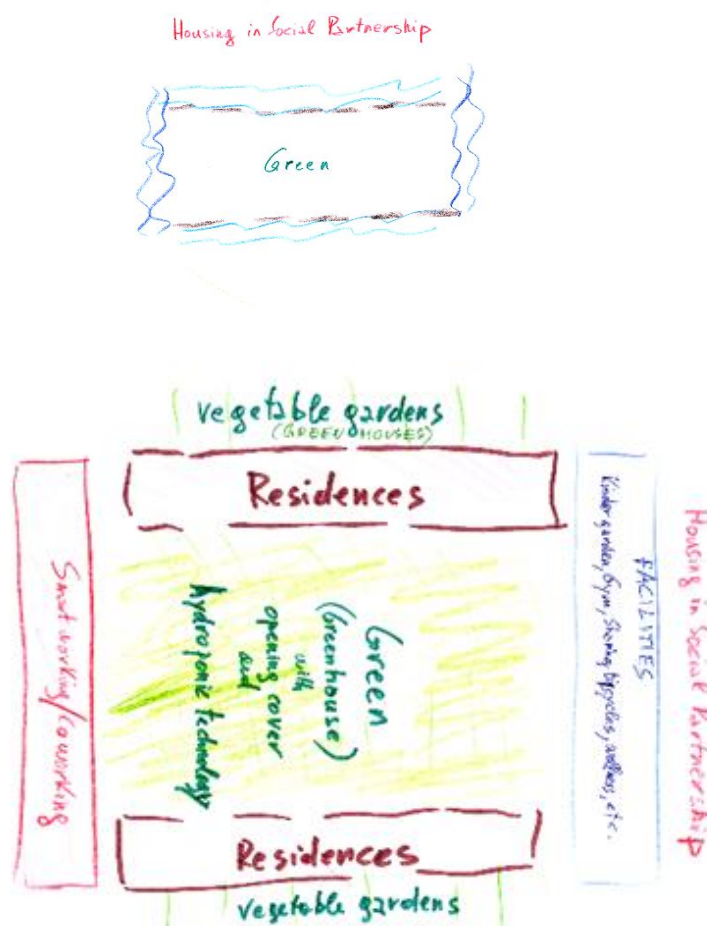 Housing in Social Partnership
Green
vegetable gardens
(GREEN HOUSES)
Residences
Smart working/coworking
Green
(Greenhouse)
with
opening cover
and
hydroponic technology
FACILITIES
Kindergarden, Gym, Sharing bicycles, wellness, etc.
Housing in Social Partnership
Residences
vegetable gardens